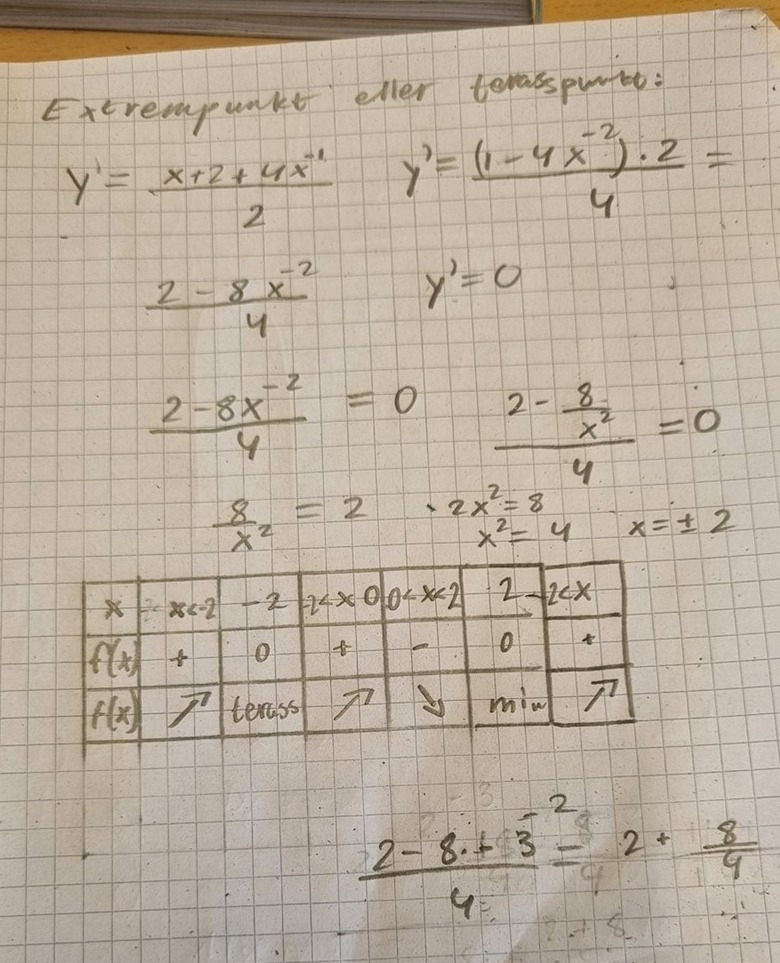 Extrempunkt eller terasspunkt:
y' = (x+2+4x⁻¹)/2    y' = ((1-4x⁻²)·2)/4 =
(2-8x⁻²)/4    y' = 0
(2-8x⁻²)/4 = 0    (2-8/x²)/4 = 0
8/x² = 2    · 2x² = 8
x² = 4    x = ± 2
x    x<-2    -2    -2<x 0    0<x<2    2    2<x
f'(x)    +    0    +    -    0    +
f(x)    ↗    terass    ↗    ↘    min    ↗
(2-8·+3⁻²)/4 = 2 + 8/9